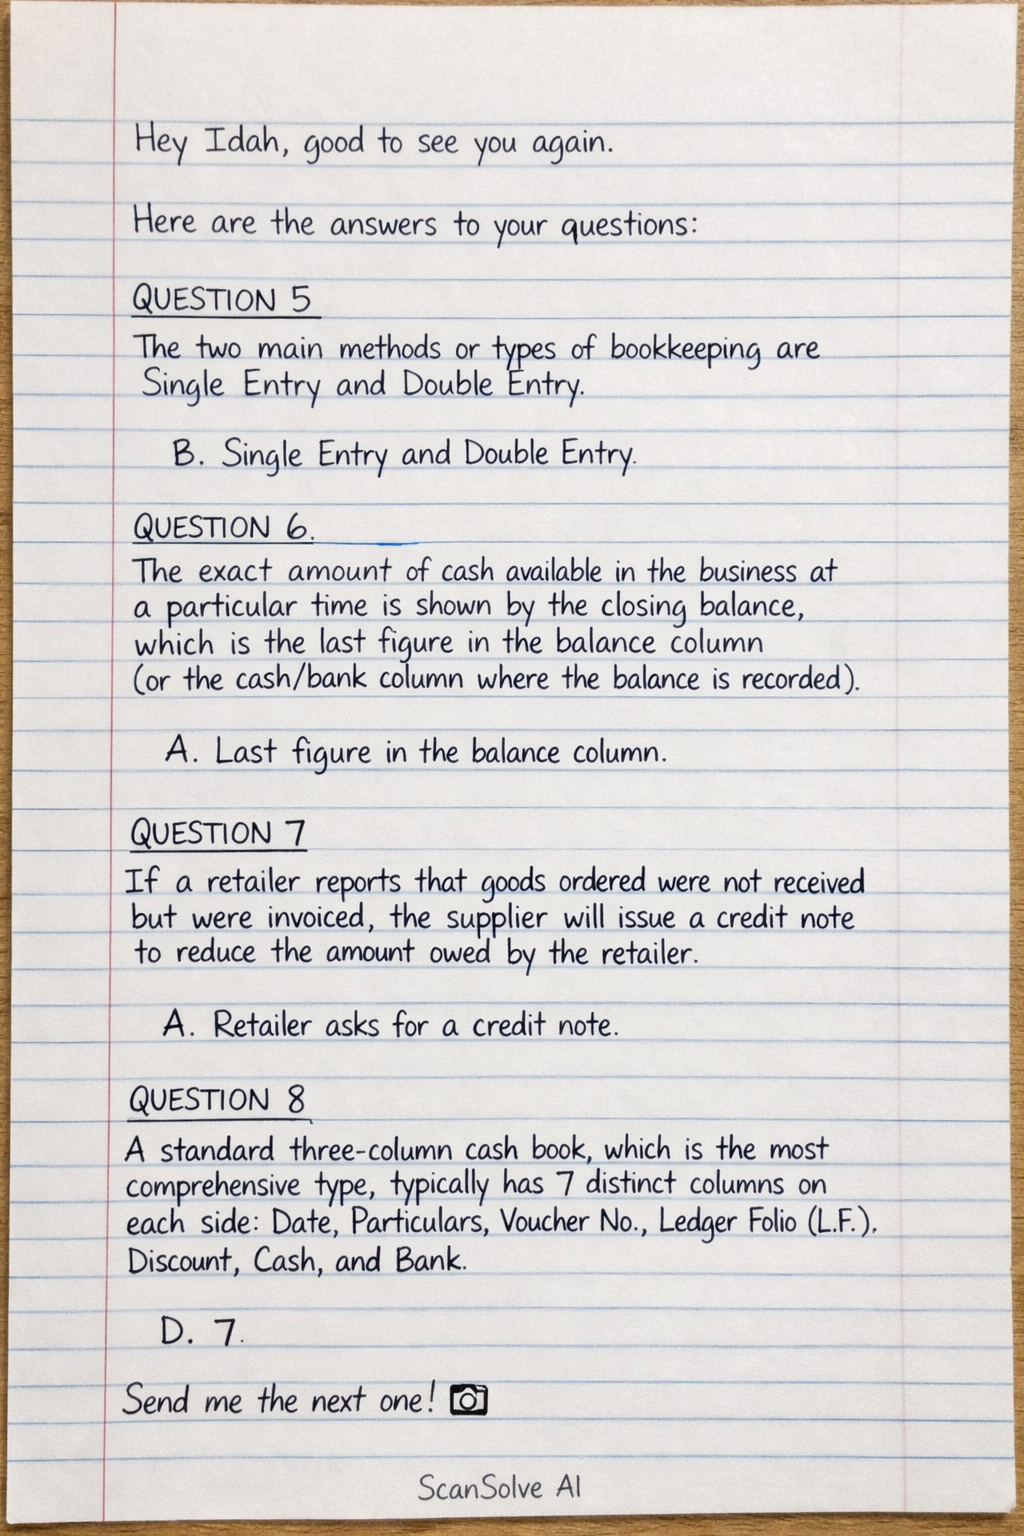 Hey Idah, good to see you again.
Here are the answers to your questions:
QUESTION 5
The two main methods or types of bookkeeping are
Single Entry and Double Entry.
B. Single Entry and Double Entry.
QUESTION 6.
The exact amount of cash available in the business at
a particular time is shown by the closing balance,
which is the last figure in the balance column
(or the cash/bank column where the balance is recorded).
A. Last figure in the balance column.
QUESTION 7
If a retailer reports that goods ordered were not received
but were invoiced, the supplier will issue a credit note
to reduce the amount owed by the retailer.
A. Retailer asks for a credit note.
QUESTION 8
A standard three-column cash book, which is the most
comprehensive type, typically has 7 distinct columns on
each side: Date, Particulars, Voucher No., Ledger Folio (L.F.).
Discount, Cash, and Bank.
D. 7.
Send me the next one!
ScanSolve AI